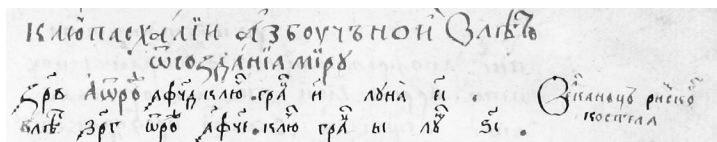 клю пасхалїи азбоучъной В лѣтъ
ѿ создан̑їа мїру
҂зр҃в А ѿ ро҃ ҂афч҃д клю҃. гра҃ и҃ луна е҃і .
в лѣ҃ ҂зр҃г ѿ ро҃ ҂афч҃е. клю҃ гра҃ ы лу҃ ѕ҃і .
римско҃
костела